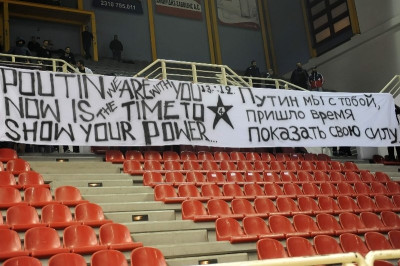 2310 755.011
POUTIN WE ARE WITH YOU
NOW IS THE TIME TO
SHOW YOUR POWER...
13-1-12
Путин мы с тобой,
пришло время
показать свою силу